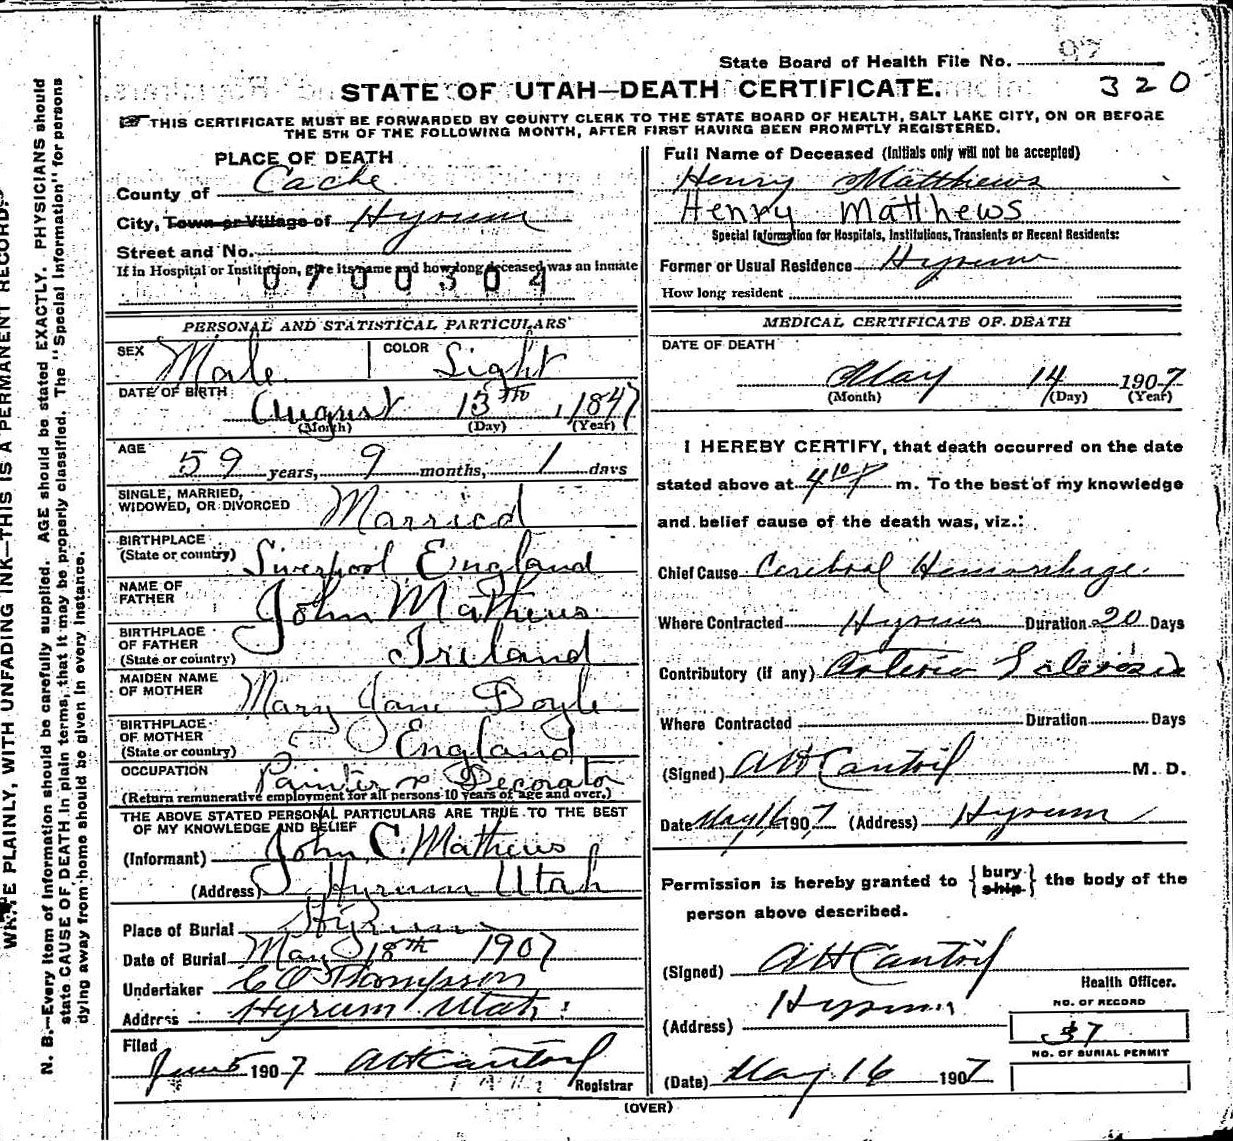 State Board of Health File No. 97
320
STATE OF UTAH—DEATH CERTIFICATE.
THIS CERTIFICATE MUST BE FORWARDED BY COUNTY CLERK TO THE STATE BOARD OF HEALTH, SALT LAKE CITY, ON OR BEFORE
THE 5TH OF THE FOLLOWING MONTH, AFTER FIRST HAVING BEEN PROMPTLY REGISTERED.
PLACE OF DEATH
County of Cache
City, Town or Village of Hyrum
Street and No.
If in Hospital or Institution, give its name and how long deceased was an inmate
0700304
PERSONAL AND STATISTICAL PARTICULARS
SEX Male COLOR Light
DATE OF BIRTH
August 13th, 1847
(Month) (Day) (Year)
AGE
59 years, 9 months, 1 days
SINGLE, MARRIED,
WIDOWED, OR DIVORCED Married
BIRTHPLACE
(State or country) Liverpool England
NAME OF
FATHER John Mathews
BIRTHPLACE
OF FATHER
(State or country) Ireland
MAIDEN NAME
OF MOTHER Mary Jane Doyle
BIRTHPLACE
OF MOTHER
(State or country) England
OCCUPATION Painter & Decorator
(Return remunerative employment for all persons 10 years of age and over.)
THE ABOVE STATED PERSONAL PARTICULARS ARE TRUE TO THE BEST
OF MY KNOWLEDGE AND BELIEF
(Informant) John C. Mathews
(Address) Hyrum Utah
Place of Burial Hyrum
Date of Burial May 18th 1907
Undertaker C O Thompson
Address Hyrum Utah
Filed
June 5 1907 A H Cantril
Registrar
Full Name of Deceased (Initials only will not be accepted)
Henry Matthews
Henry Matthews
Special Information for Hospitals, Institutions, Transients or Recent Residents:
Former or Usual Residence Hyrum
How long resident
MEDICAL CERTIFICATE OF DEATH
DATE OF DEATH
May 14 1907
(Month) (Day) (Year)
I HEREBY CERTIFY, that death occurred on the date
stated above at 4 10 P m. To the best of my knowledge
and belief cause of the death was, viz.:
Chief Cause Cerebral Hemorrhage
Where Contracted Hyrum Duration 20 Days
Contributory (if any) Arterio Sclerosis
Where Contracted Duration Days
(Signed) A H Cantril M. D.
Date May 16 1907 (Address) Hyrum
Permission is hereby granted to {bury ship} the body of the
person above described.
(Signed) A H Cantril
Health Officer.
(Address) Hyrum
NO. OF RECORD
37
NO. OF BURIAL PERMIT
(Date) May 16 1907
(OVER)
N. B.—Every item of information should be carefully supplied. AGE should be stated EXACTLY. PHYSICIANS should
state CAUSE OF DEATH in plain terms, that it may be properly classified. The "Special Information" for persons
dying away from home should be given in every instance.
PLAINLY, WITH UNFADING INK—THIS IS A PERMANENT RECORD.